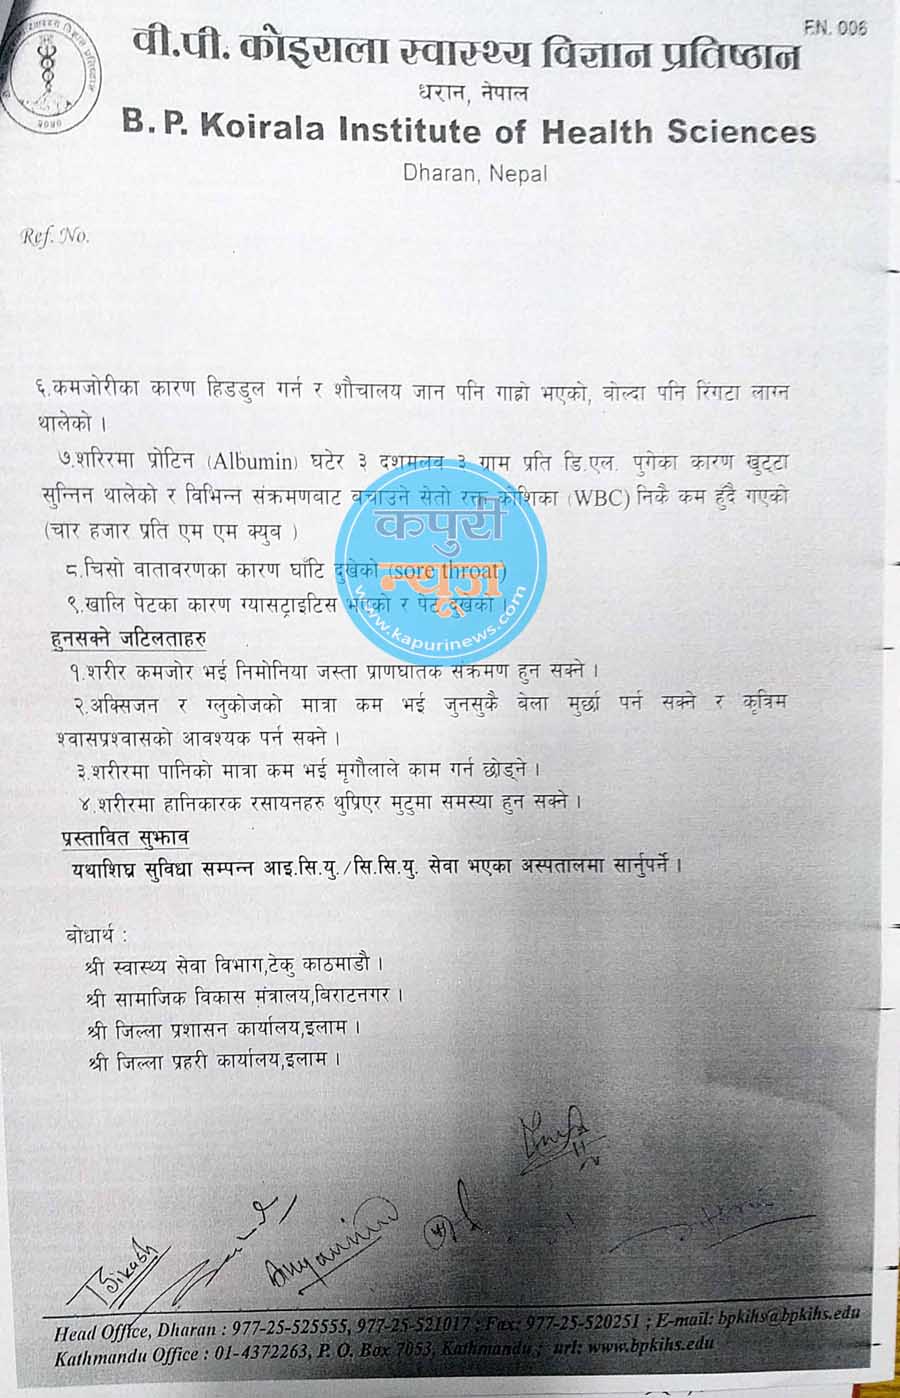 F.N. 006
वी.पी. कोइराला स्वास्थ्य विज्ञान प्रतिष्ठान
धरान, नेपाल
B. P. Koirala Institute of Health Sciences
Dharan, Nepal
२०५०
Ref. No.
६.कमजोरीका कारण हिडडुल गर्न र शौचालय जान पनि गाह्रो भएको, बोल्दा पनि रिंगटा लाग्न
थालेको ।
७.शरिरमा प्रोटिन (Albumin) घटेर ३ दशमलव ३ ग्राम प्रति डि.एल. पुगेका कारण खुट्टा
सुन्निन थालेको र विभिन्न संक्रमणबाट बचाउने सेतो रक्त कोशिका (WBC) निकै कम हुँदै गएको
(चार हजार प्रति एम एम क्युब )
८.चिसो वातावरणका कारण घाँटि दुखेको (sore throat)
९.खालि पेटका कारण ग्यासट्राइटिस भएको र पेट दुखेको ।
कपुरी
न्यूज
www.kapurinews.com
हुनसक्ने जटिलताहरु
१.शरीर कमजोर भई निमोनिया जस्ता प्राणघातक संक्रमण हुन सक्ने ।
२.अक्सिजन र ग्लुकोजको मात्रा कम भई जुनसुकै बेला मुर्छा पर्न सक्ने र कृत्रिम
श्वासप्रश्वासको आवश्यक पर्न सक्ने ।
३.शरीरमा पानिको मात्रा कम भई मृगौलाले काम गर्न छोड्ने ।
४.शरीरमा हानिकारक रसायनहरु थुप्रिएर मुटुमा समस्या हुन सक्ने ।
प्रस्तावित सुझाव
यथाशिघ्र सुविधा सम्पन्न आइ.सि.यु./सि.सि.यु. सेवा भएका अस्पतालमा सार्नुपर्ने ।
बोधार्थ :
श्री स्वास्थ्य सेवा विभाग,टेकु काठमाडौ ।
श्री सामाजिक विकास मंत्रालय,बिराटनगर ।
श्री जिल्ला प्रशासन कार्यालय,इलाम ।
श्री जिल्ला प्रहरी कार्यालय,इलाम ।
Bikash
Head Office, Dharan : 977-25-525555, 977-25-521017 ; Fax: 977-25-520251 ; E-mail: bpkihs@bpkihs.edu
Kathmandu Office : 01-4372263, P. O. Box 7053, Kathmandu ; url: www.bpkihs.edu